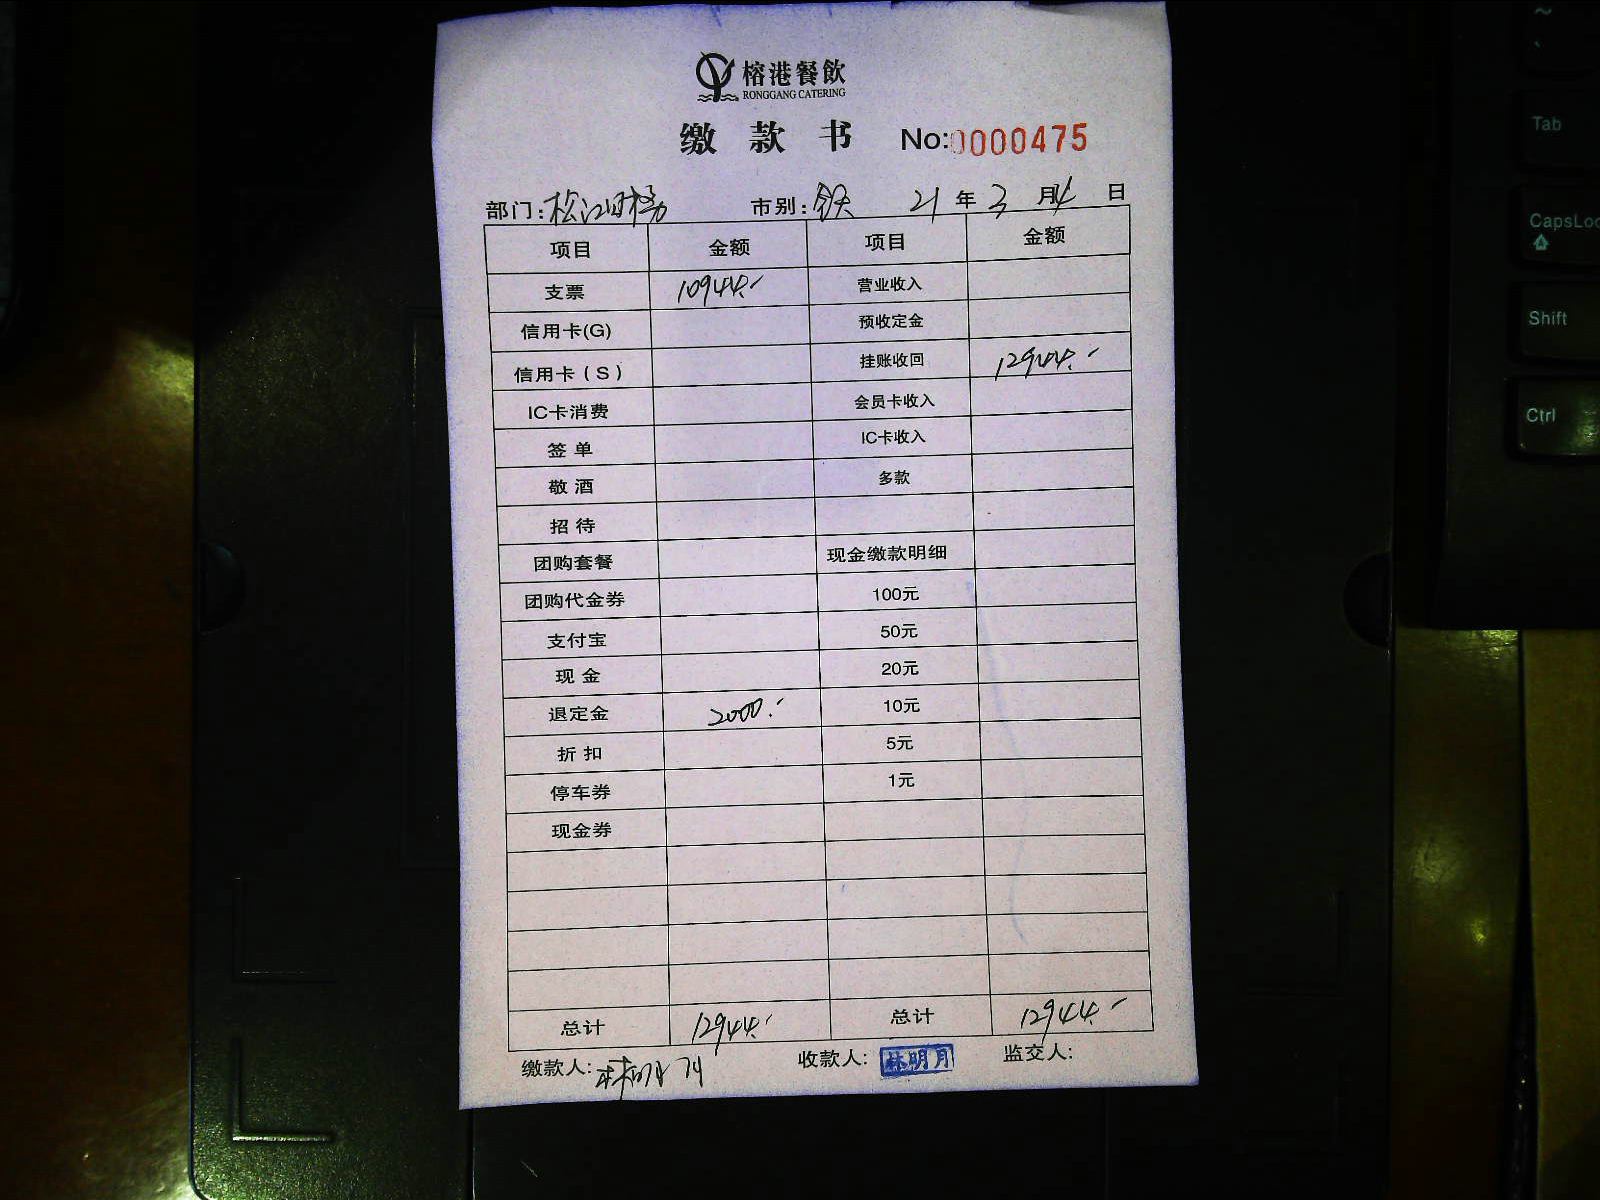 榕港餐飲
RONGGANG CATERING
缴款书 No:0000475
部门: 市别:全天 21年3月4日
项目 金额 项目 金额
支票 10944.- 营业收入
信用卡(G) 预收定金
信用卡(S) 挂账收回 12944.-
IC卡消费 会员卡收入
签单 IC卡收入
敬酒 多款
招待
团购套餐 现金缴款明细
团购代金券 100元
支付宝 50元
现金 20元
退定金 2000.- 10元
折扣 5元
停车券 1元
现金券
总计 12944.- 总计 12944.-
缴款人:林明月 收款人:林明月 监交人:
~
`
Tab
CapsLoc
Shift
Ctrl